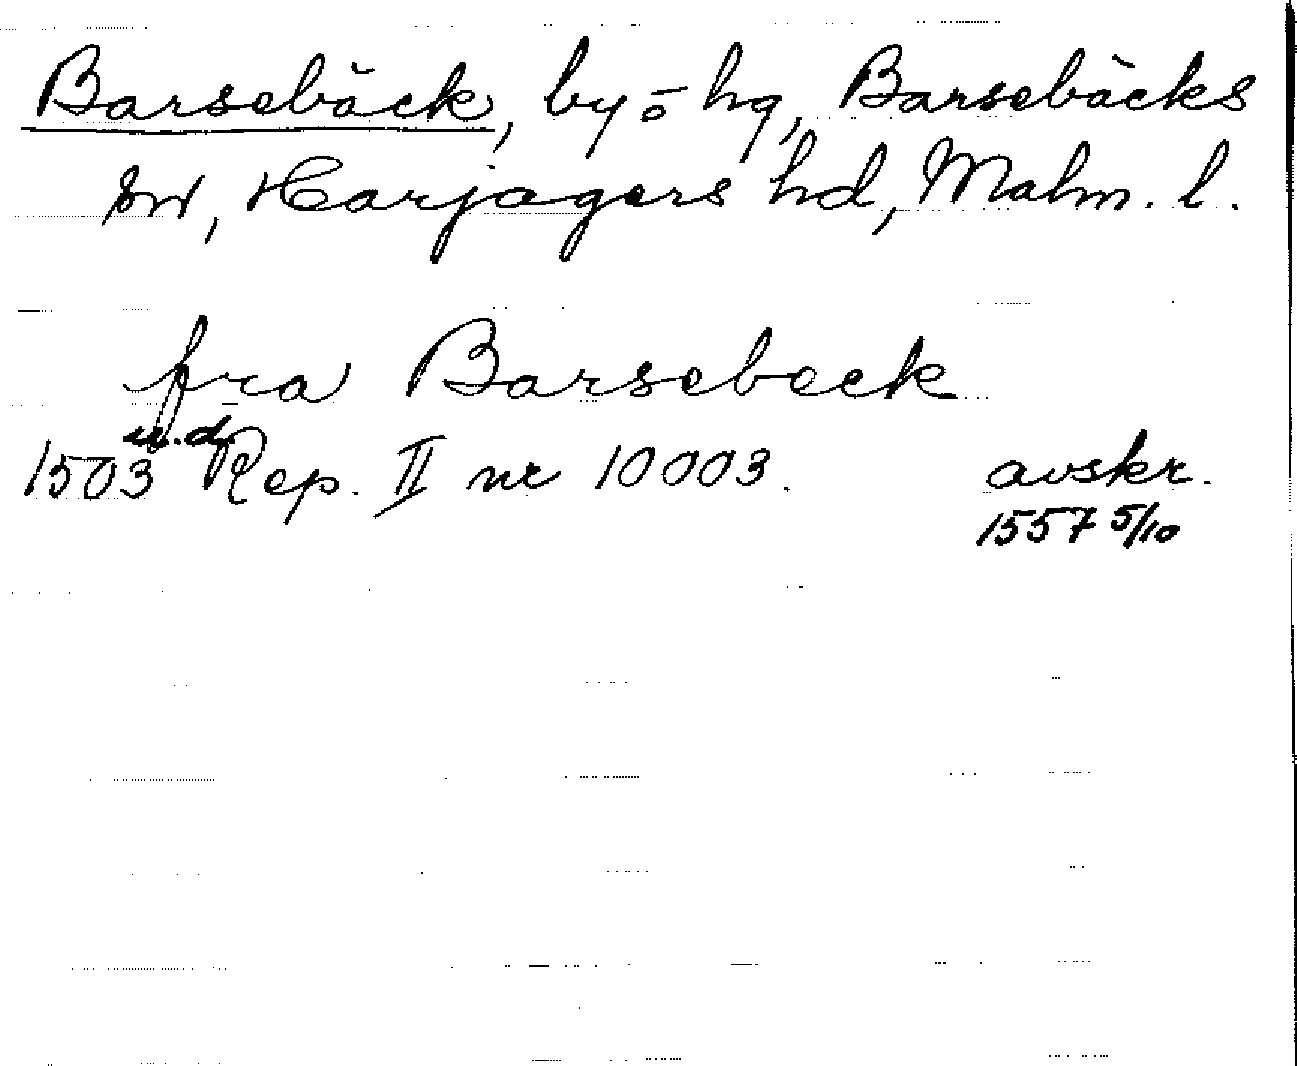 Barsebäck, by o hg, Barsebäcks
sn, Harjagers hd, Malm. l.
fra Barsebeck
1503 u.d. Rep. II nr 10003. avskr.
1557 5/10